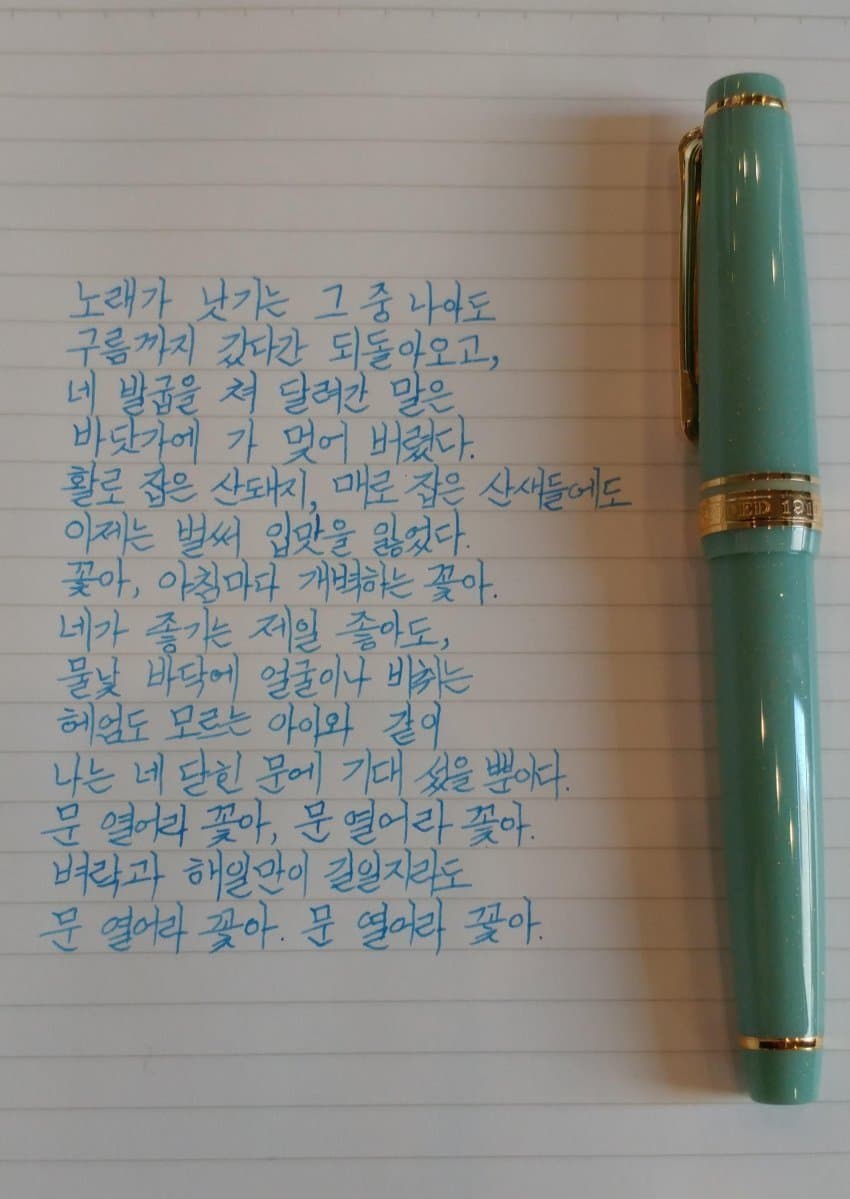 노래가 낫기는 그 중 나아도
구름까지 갔다간 되돌아오고,
네 발굽을 쳐 달려간 말은
바닷가에 가 멎어 버렸다.
활로 잡은 산돼지, 매로 잡은 산새들에도
이제는 벌써 입맛을 잃었다.
꽃아, 아침마다 개벽하는 꽃아.
네가 좋기는 제일 좋아도,
물낯 바닥에 얼굴이나 비취는
헤엄도 모르는 아이와 같이
나는 네 닫힌 문에 기대 섰을 뿐이다.
문 열어라 꽃아, 문 열어라 꽃아.
벼락과 해일만이 길일지라도
문 열어라 꽃아. 문 열어라 꽃아.